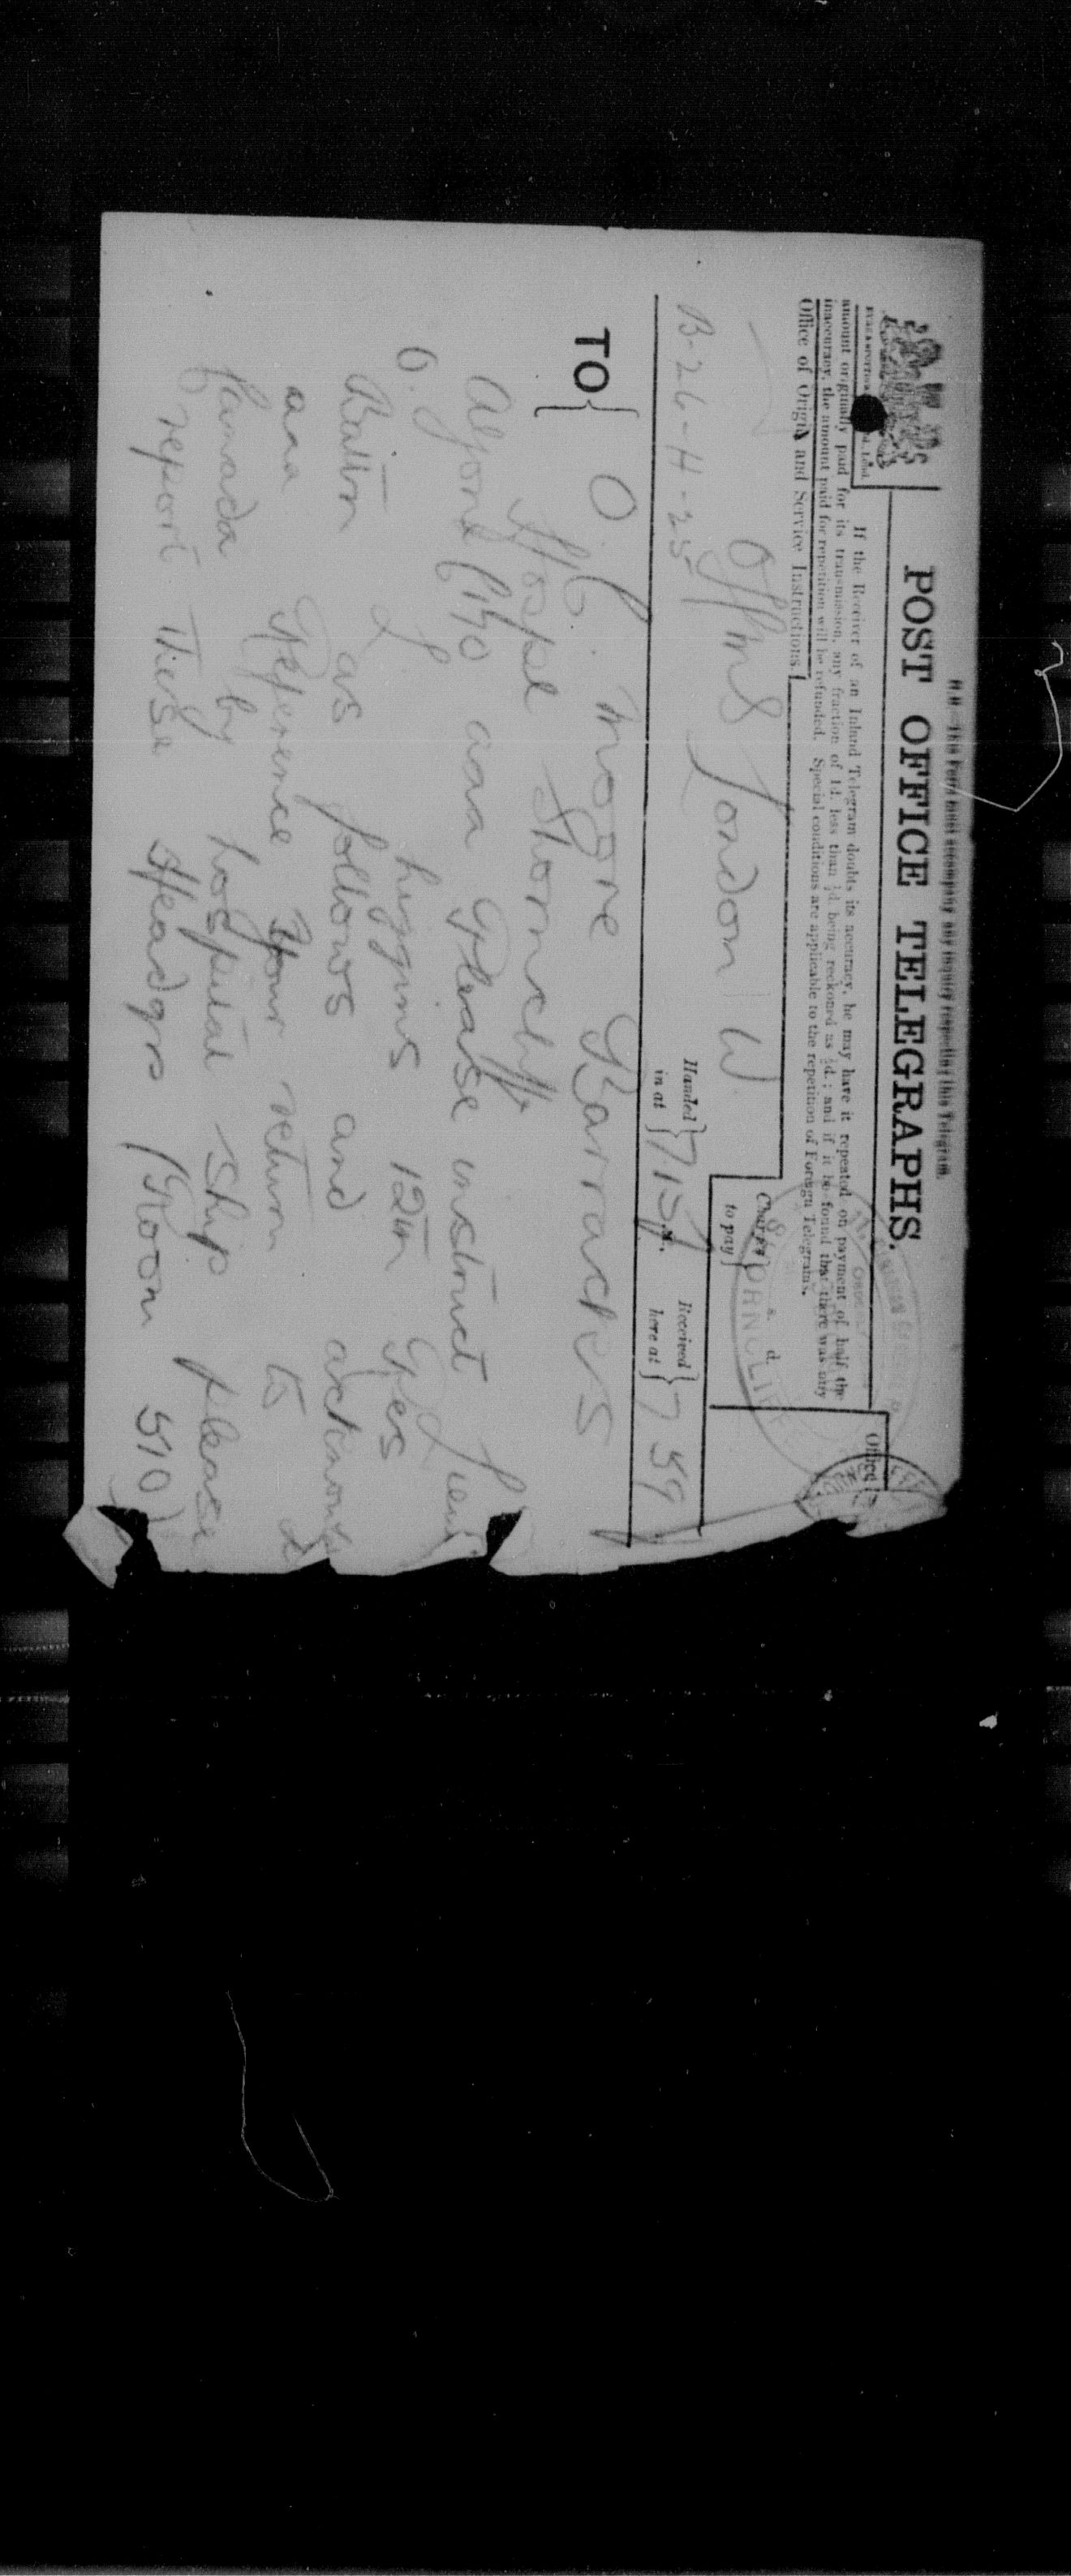 N.B.—This Form must accompany any inquiry respecting this Telegram.
POST OFFICE TELEGRAPHS.
If the Receiver of an Inland Telegram doubts its accuracy, he may have it repeated on payment of half the
amount originally paid for its transmission, any fraction of 1d. less than ½d. being reckoned as ½d.; and if it be found that there was any
inaccuracy, the amount paid for repetition will be refunded. Special conditions are applicable to the repetition of Foreign Telegrams.
Office of Origin and Service Instructions.
Charges to pay
s. d.
OHMS London W.
B-26-H-25
Handed in at 7 15
Received here at 7 59
TO
O.C. Moore Barracks
Hospl Shorncliffe
please instruct Lieut
O. L higgins 12th Res
Battn as follows and
Reference your return to
Canada by hospital ship please
report these Headqrs (Room 510)